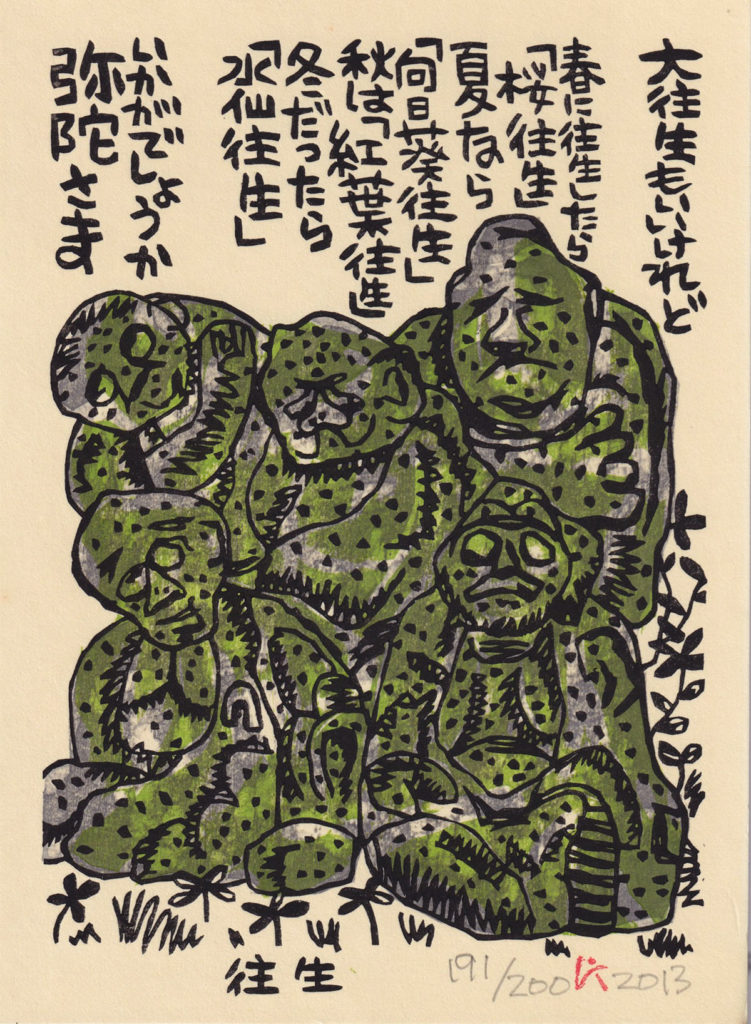 大往生もいいけれど
春に往生したら
「桜往生」
夏なら
「向日葵往生」
秋は「紅葉往生」
冬だったら
「水仙往生」
いかがでしょうか
弥陀さま
往生
191/200 2013